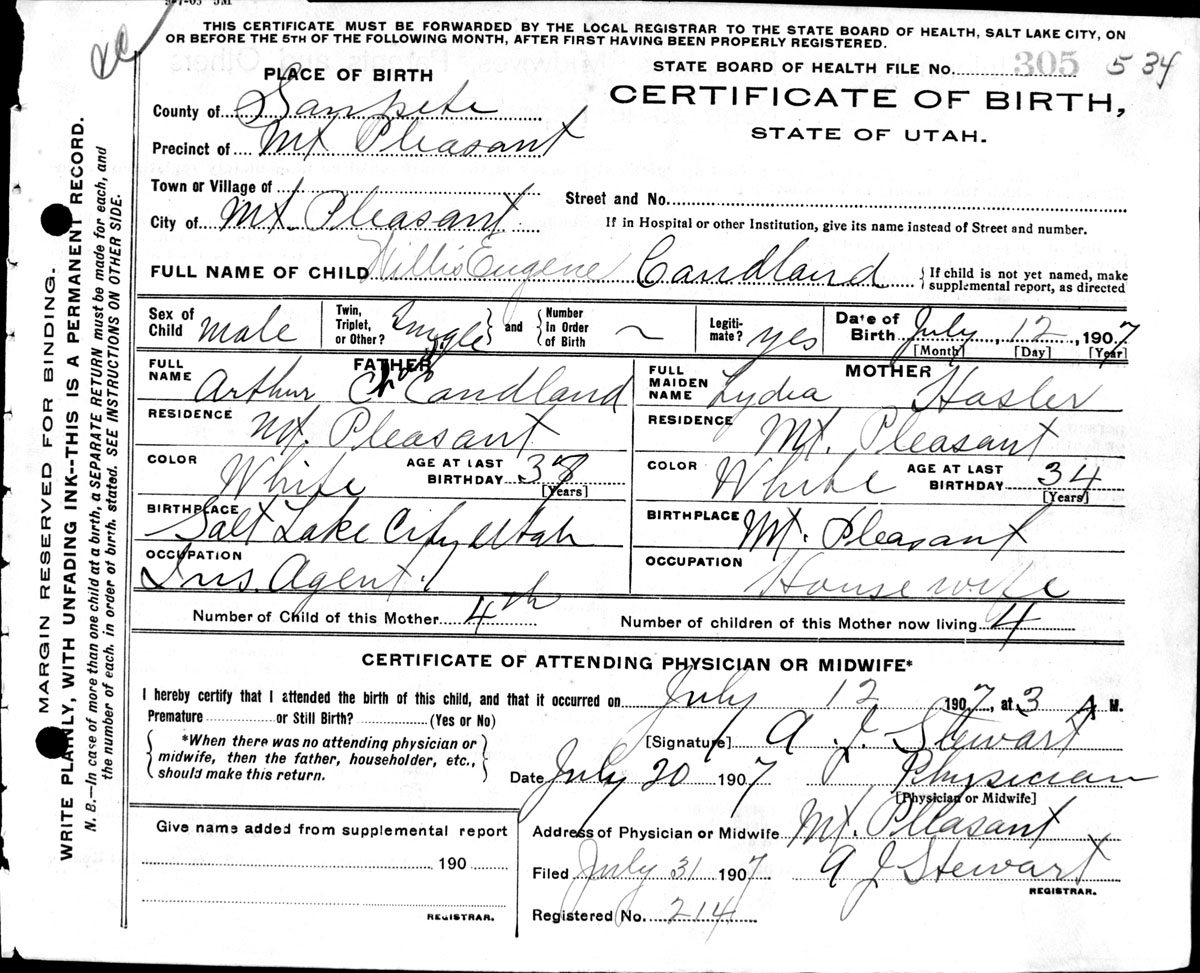 THIS CERTIFICATE MUST BE FORWARDED BY THE LOCAL REGISTRAR TO THE STATE BOARD OF HEALTH, SALT LAKE CITY, ON
OR BEFORE THE 5TH OF THE FOLLOWING MONTH, AFTER FIRST HAVING BEEN PROPERLY REGISTERED.
STATE BOARD OF HEALTH FILE No. 305 534
PLACE OF BIRTH
CERTIFICATE OF BIRTH,
STATE OF UTAH.
County of Sanpete
Precinct of Mt Pleasant
Town or Village of
Street and No.
City of Mt. Pleasant
If in Hospital or other Institution, give its name instead of Street and number.
FULL NAME OF CHILD Willis Eugene Candland
{ If child is not yet named, make
supplemental report, as directed
Sex of Child male
Twin, Triplet, or Other? Single } and { Number In Order of Birth ~
Legitimate? yes
Date of Birth July, 12, 1907
[Month] [Day] [Year]
FATHER
FULL NAME Arthur Candland
RESIDENCE Mt. Pleasant
COLOR White AGE AT LAST BIRTHDAY 38
[Years]
BIRTHPLACE Salt Lake City Utah
OCCUPATION Ins. Agent.
MOTHER
FULL MAIDEN NAME Lydia Hasler
RESIDENCE Mt. Pleasant
COLOR White AGE AT LAST BIRTHDAY 34
[Years]
BIRTHPLACE Mt. Pleasant
OCCUPATION House wife
Number of Child of this Mother 4th Number of children of this Mother now living 4
CERTIFICATE OF ATTENDING PHYSICIAN OR MIDWIFE*
I hereby certify that I attended the birth of this child, and that it occurred on July 12 1907, at 3 A M.
Premature or Still Birth? (Yes or No)
*When there was no attending physician or
midwife, then the father, householder, etc.,
should make this return.
[Signature] A. J. Stewart
Date July 20 1907 Physician
[Physician or Midwife]
Give name added from supplemental report
190
REGISTRAR.
Address of Physician or Midwife Mt. Pleasant
Filed July 31 1907 A J Stewart
REGISTRAR.
Registered No. 214
MARGIN RESERVED FOR BINDING.
WRITE PLAINLY, WITH UNFADING INK--THIS IS A PERMANENT RECORD.
N. B.—In case of more than one child at a birth, a SEPARATE RETURN must be made for each, and
the number of each, in order of birth, stated. SEE INSTRUCTIONS ON OTHER SIDE.